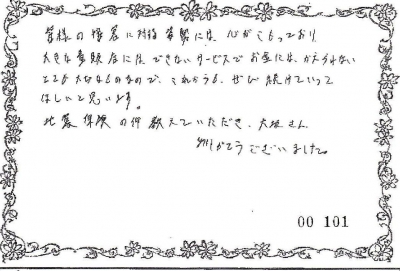 皆様の接客に対する姿勢には、心がこもっており
大きな量販店にはできないサービスでお金には、かえられない
とても大切なものなので、これからも、ぜひ続けていって
ほしいと思います。
地震保険の件教えていただき、大坂さん
ありがとうございました。
00 101